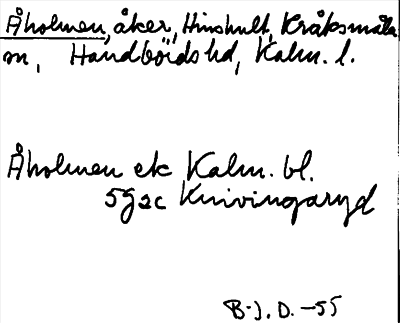 Åholmen, åker, Hinshult, Kråksmåla
sn, Handbörds hd, Kalm. l.
Åholmen ek Kalm. bl.
5g2c Knivingaryd
B.J.D. -55